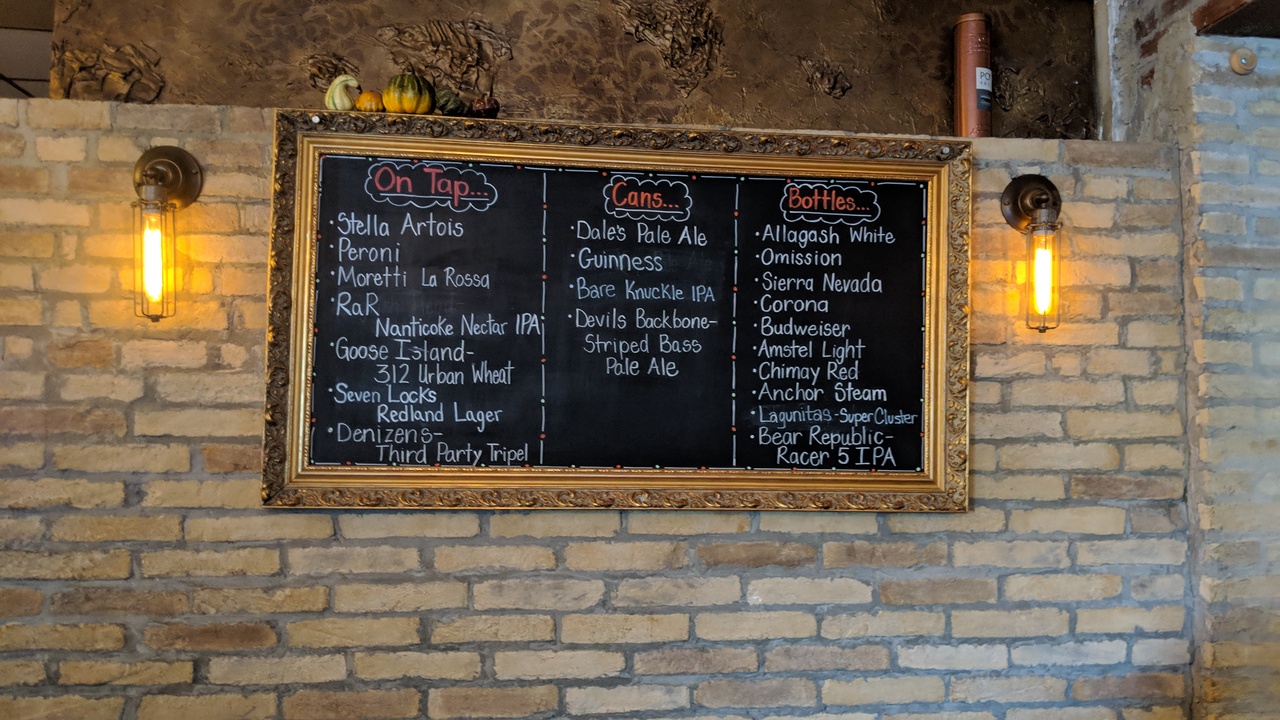 On Tap...
· Stella Artois
· Peroni
· Moretti La Rossa
· RaR
Nanticoke Nectar IPA
· Goose Island-
312 Urban Wheat
· Seven Locks
Redland Lager
· Denizens-
Third Party Tripel
Cans...
· Dale's Pale Ale
· Guinness
· Bare Knuckle IPA
· Devils Backbone-
Striped Bass
Pale Ale
Bottles...
· Allagash White
· Omission
· Sierra Nevada
· Corona
· Budweiser
· Amstel Light
· Chimay Red
· Anchor Steam
· Lagunitas - Super Cluster
· Bear Republic-
Racer 5 IPA